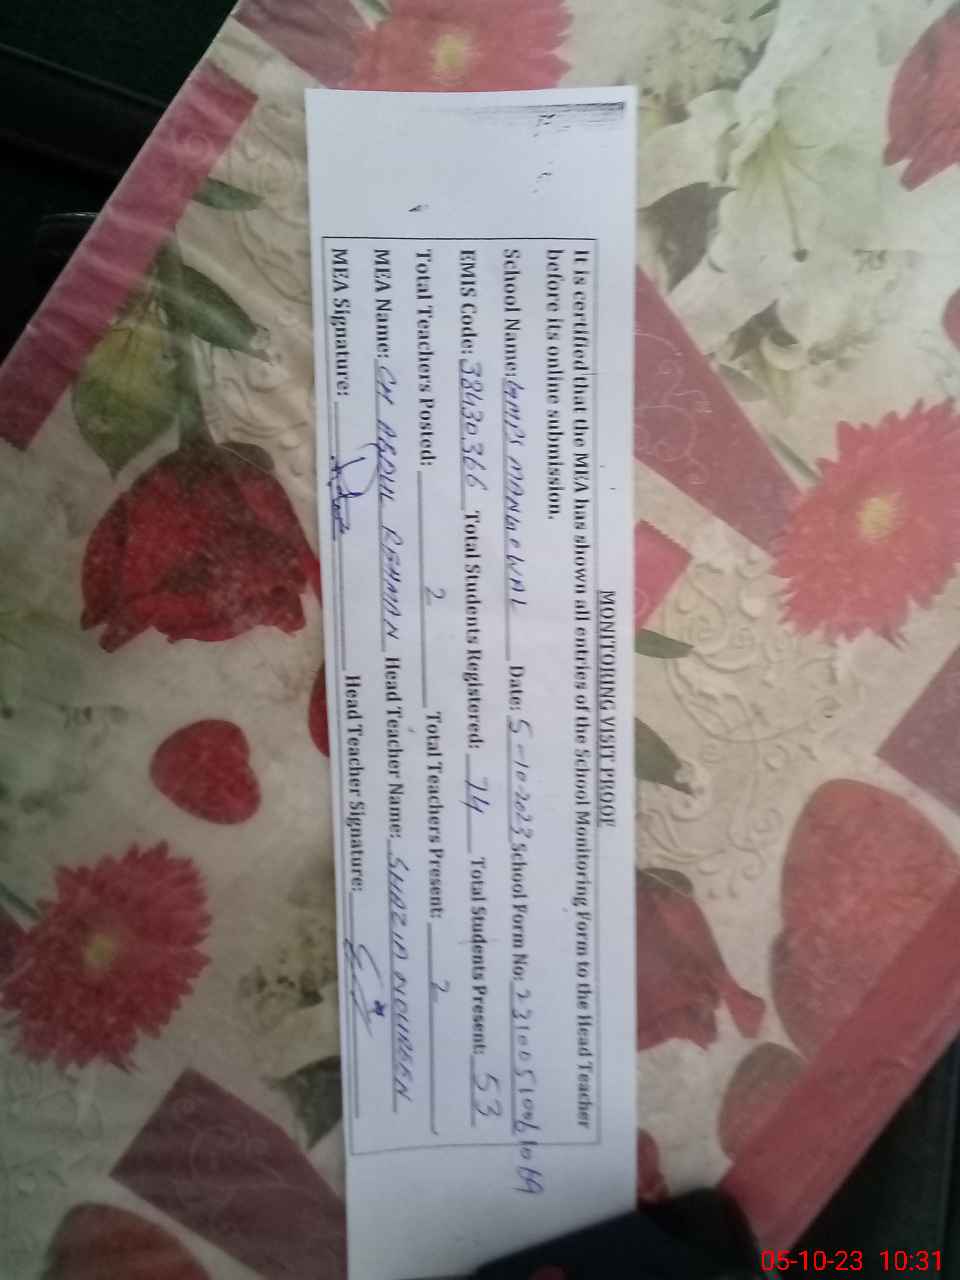 MONITORING VISIT PROOF
It is certified that the MEA has shown all entries of the School Monitoring Form to the Head Teacher
before its online submission.
School Name: GMPS MANGOWAL Date: 5-10-2023 School Form No: 23100510061069
EMIS Code: 38430366 Total Students Registered: 74 Total Students Present: 53
Total Teachers Posted: 2 Total Teachers Present: 2
MEA Name: CH ABDUL REHMAN Head Teacher Name: SHAZIA NOUREEN
MEA Signature: Head Teacher Signature:
05-10-23 10:31